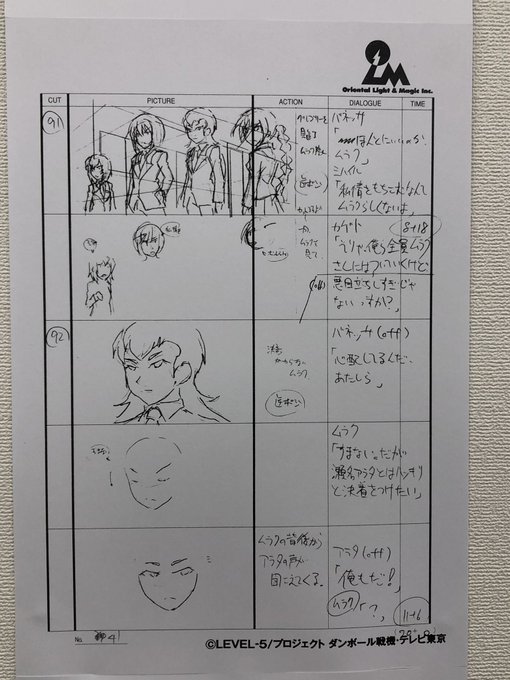 OLM
Oriental Light & Magic Inc.
CUT
PICTURE
ACTION
DIALOGUE
TIME
91
バネッサ
「ほんとにいいのか、
ムラク」
ミハイル
「私情をもちこむなんて
ムラクらしくないよ」
カゲト
8+18
「そりゃ、俺ら全員ムラク
さんにはついていくけど
(off)
悪目立ちしすぎじゃ
ないっすか?」
92
バネッサ(off)
「心配してるんだ、
あたしら」
ムラク
ムラク
「すまない。だが
瀬名アラタとはハッキリ
と決着をつけたい」
ムラクの背後から
アラタの声が
聞こえてくる。
アラタ(off)
「俺もだ!」
ムラク「?」
11+16
No.
41
©LEVEL-5/プロジェクト ダンボール戦機・テレビ東京